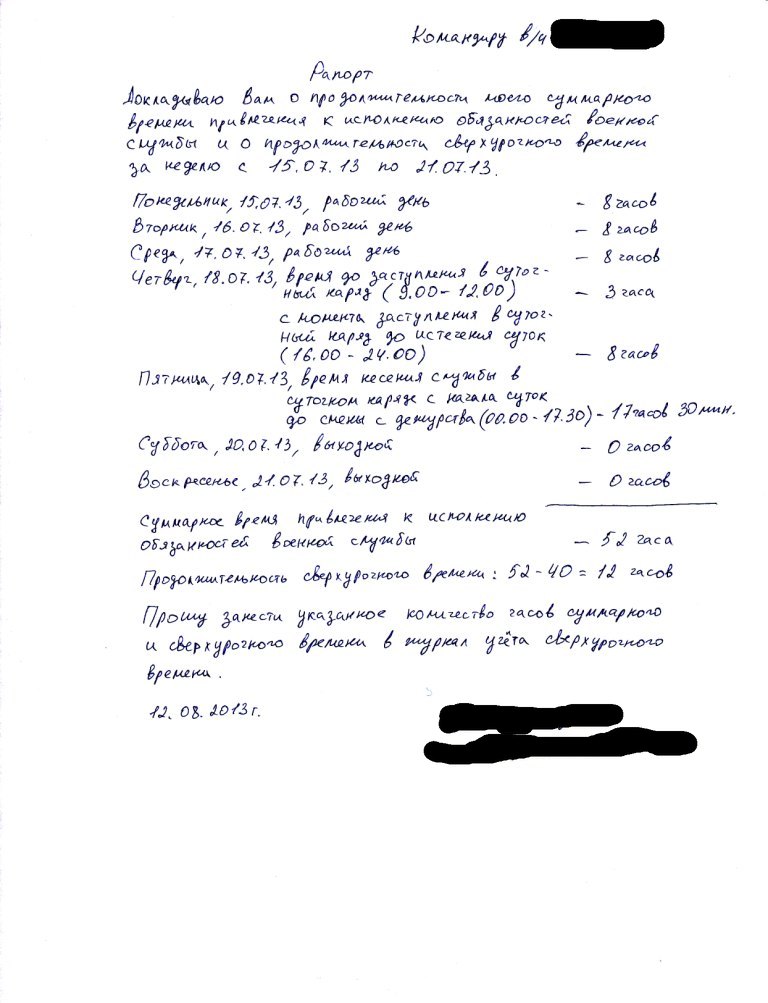 Командиру в/ч
Рапорт
Докладываю Вам о продолжительности моего суммарного
времени привлечения к исполнению обязанностей военной
службы и о продолжительности сверхурочного времени
за неделю с 15.07.13 по 21.07.13.
Понедельник, 15.07.13, рабочий день – 8 часов
Вторник, 16.07.13, рабочий день – 8 часов
Среда, 17.07.13, рабочий день – 8 часов
Четверг, 18.07.13, время до заступления в суточ-
ный наряд (9.00-12.00) – 3 часа
с момента заступления в суточ-
ный наряд до истечения суток
(16.00-24.00) – 8 часов
Пятница, 19.07.13, время несения службы в
суточном наряде с начала суток
до смены с дежурства (00.00-17.30) – 17 часов 30 мин.
Суббота, 20.07.13, выходной – 0 часов
Воскресенье, 21.07.13, выходной – 0 часов
Суммарное время привлечения к исполнению
обязанностей военной службы – 52 часа
Продолжительность сверхурочного времени: 52-40 = 12 часов
Прошу занести указанное количество часов суммарного
и сверхурочного времени в журнал учёта сверхурочного
времени.
12.08.2013г.